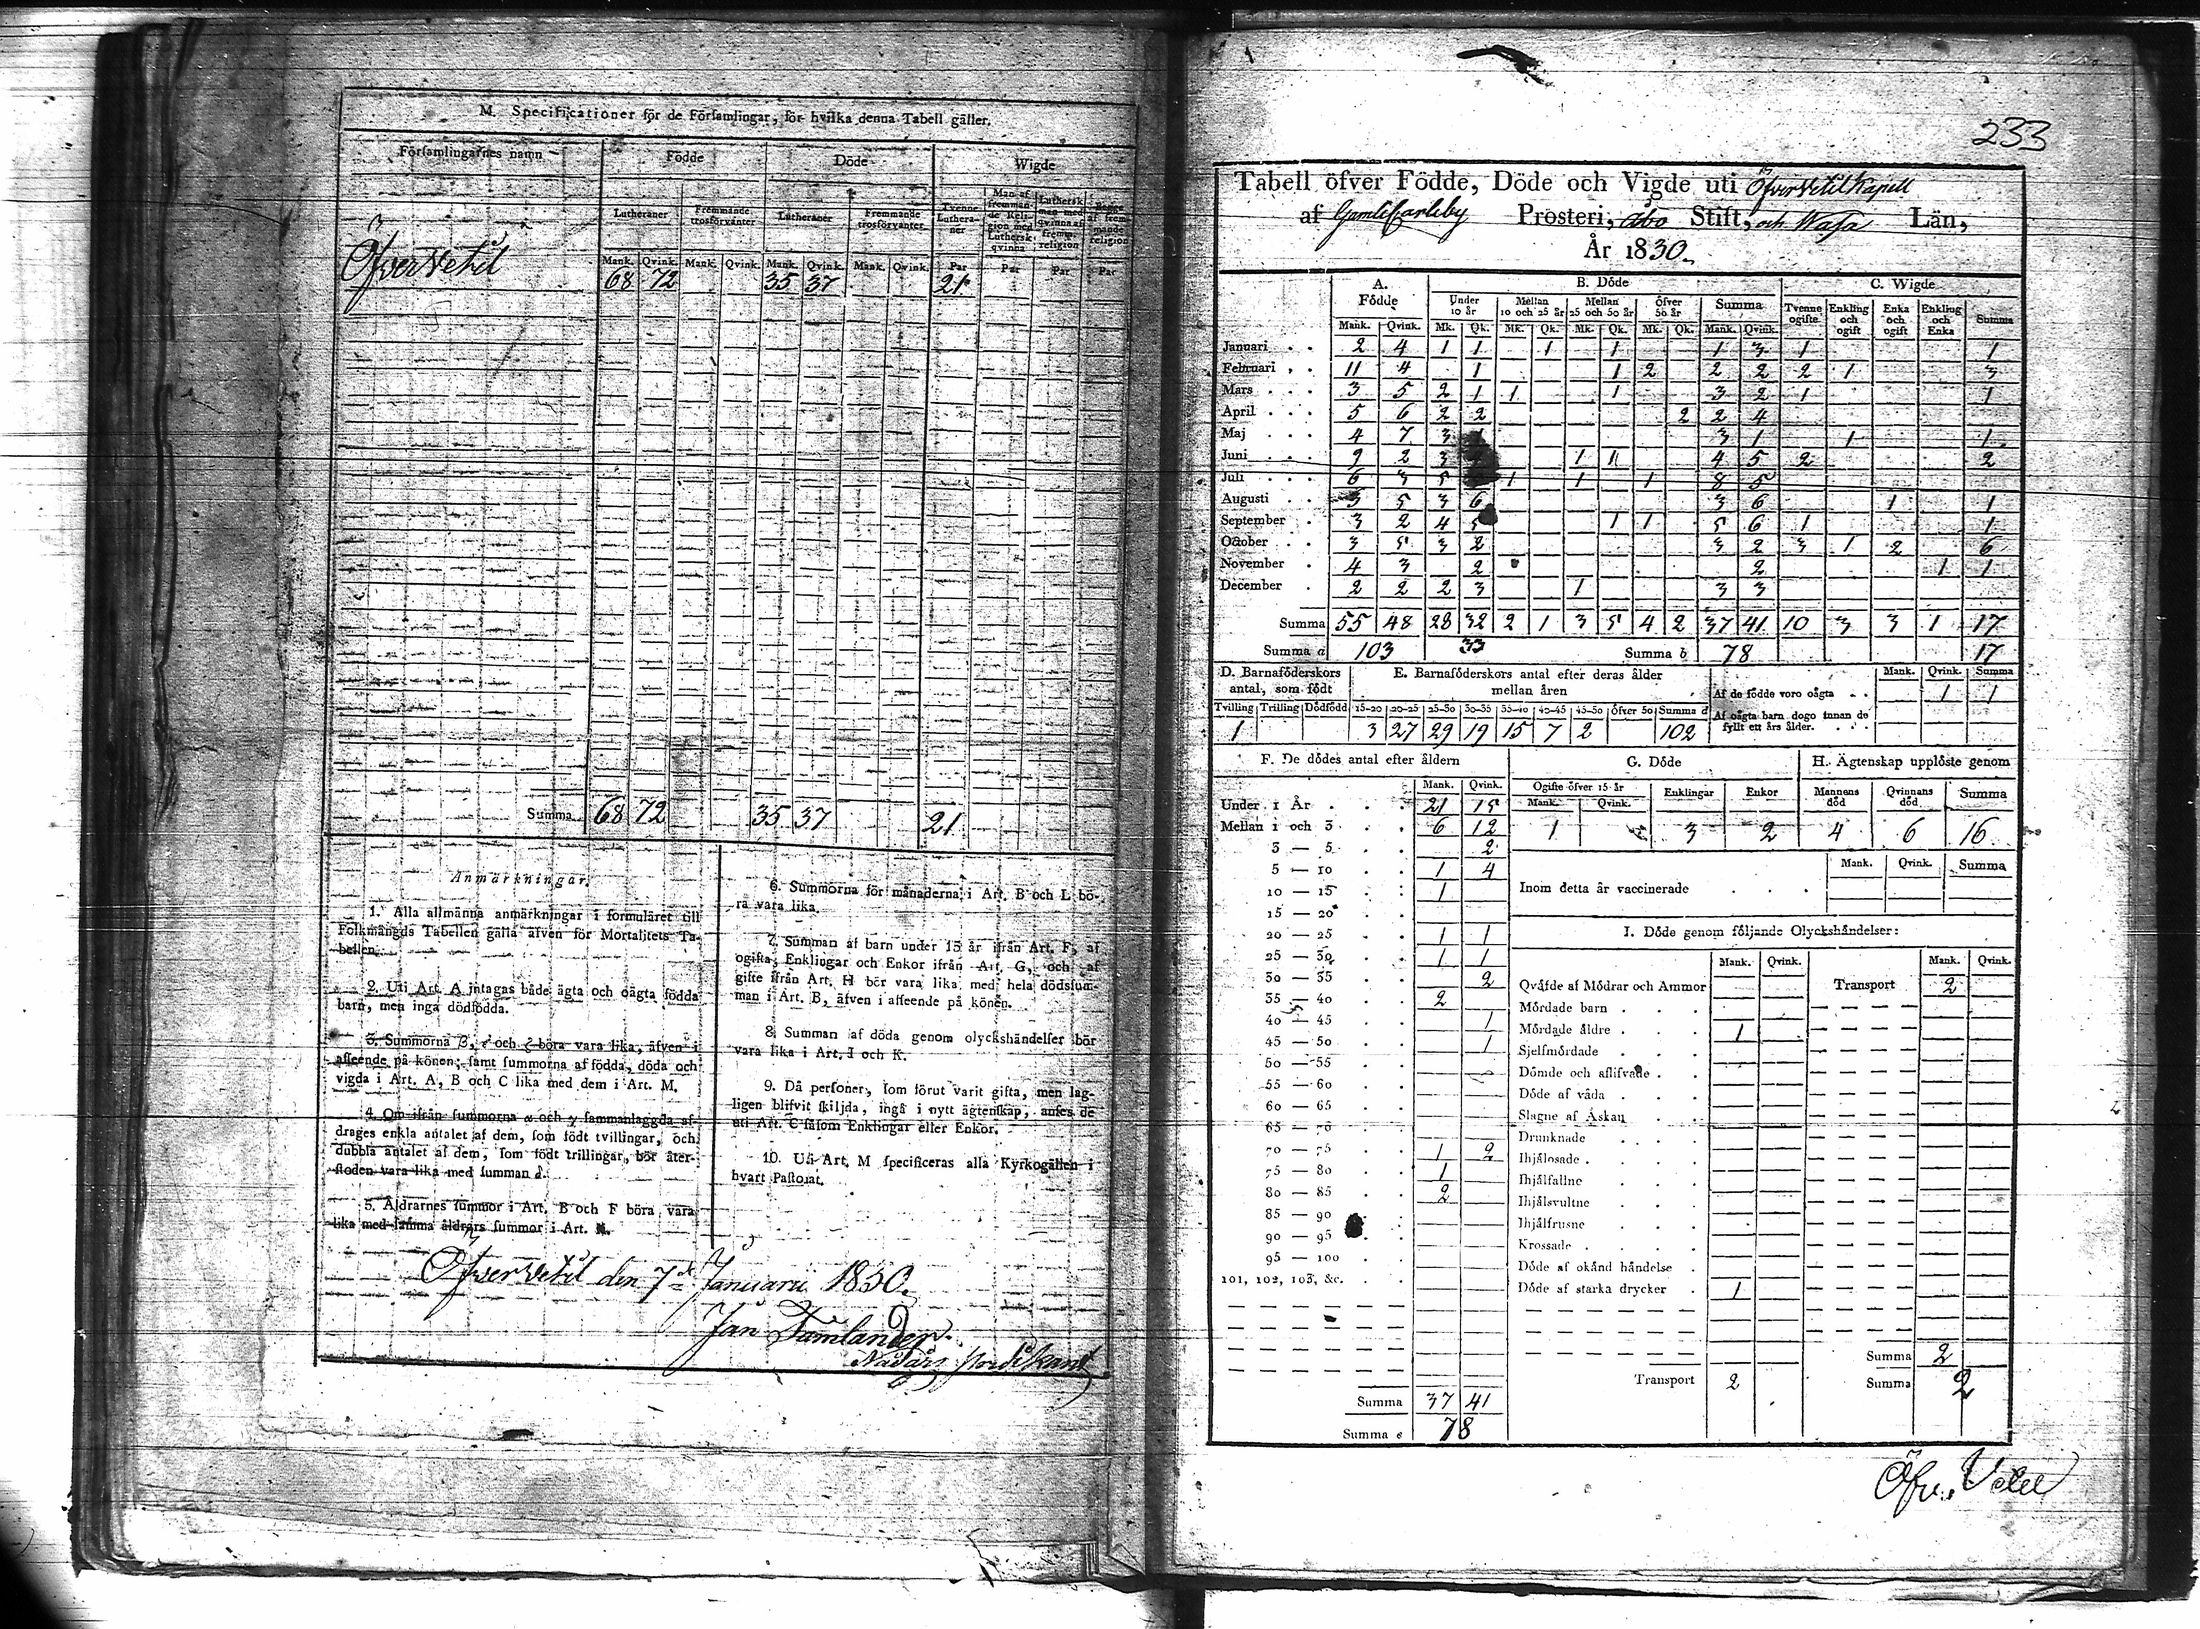 M. Specificationer för de Församlingar, för hvilka denna Tabell gäller.
Församlingarnes namn Födde Döde Wigde
Lutheraner Fremmande trosförvanter Lutheraner Fremmande trosförvanter Tvenne Lutheraner Man af fremmande Religion med Luthersk qvinna Luthersk man med qvinna af fremm. religion Begge af fremmande religion
Mank. Qvink. Mank. Qvink. Mank. Qvink. Mank. Qvink. Par Par Par Par
Öfver Vetil 68 72 35 37 21
Summa 68 72 35 37 21
Anmärkningar.
1. Alla allmänna anmärkningar i formuläret till
Folkmängds Tabellen gälla äfven för Mortalitets Ta-
bellen.
2. Uti Art. A intagas både ägta och oägta födda
barn, men inga dödfödda.
3. Summorna β, ε och ζ böra vara lika, äfven i
affeende på könen; samt summorna af födda, döda och
vigda i Art. A, B och C lika med dem i Art. M.
4. Om ifrån summorna α och γ sammanlaggda af-
drages enkla antalet af dem, som födt tvillingar, och
dubbla antalet af dem, som födt trillingar, bör åter-
stoden vara lika med summan δ.
5. Åldrarnes summor i Art. B och F böra vara
lika med samma åldrars summor i Art.
6. Summorna för månaderna i Art. B och L bö-
ra vara lika.
7. Summan af barn under 15 år ifrån Art. F, af
ogifta, Enklingar och Enkor ifrån Art. G, och af
gifte ifrån Art. H bör vara lika med hela dödssum-
man i Art. B, äfven i affeende på könen.
8. Summan af döda genom olyckshändelser bör
vara lika i Art. I och K.
9. Då personer, som förut varit gifta, men lag-
ligen blifvit skiljda, ingå i nytt ägtenskap, anses de
uti Art. C såsom Enklingar eller Enkor.
10. Uti Art. M specificeras alla Kyrkogällen i
hvart Pastorat.
Öfver Vetil den 7de Januarii 1830.
Jan
233
Tabell öfver Födde, Döde och Vigde uti Öfver Vetil Kapell
af GamleCarleby Prosteri, Åbo Stift, och Wasa Län,
År 1830.
A. Födde B. Döde C. Wigde
Under 10 år Mellan 10 och 25 år Mellan 25 och 50 år Öfver 50 år Summa Tvenne ogifte Enkling och ogift Enka och ogift Enkling och Enka Summa
Mank. Qvink. Mk. Qk. Mk. Qk. Mk. Qk. Mk. Qk. Mank. Qvink.
Januari 2 4 1 1 1 1 1 3 1 1
Februari 11 4 1 1 2 2 2 2 1 3
Mars 3 5 2 1 1 1 3 2 1 1
April 5 6 2 2 2 2 4
Maj 4 7 3 1 3 1 1 1
Juni 9 2 3 1 1 4 5 2 2
Juli 6 3 5 1 1 1 8 5
Augusti 3 5 3 6 3 6 1 1
September 3 2 4 5 1 1 5 6 1 1
October 3 5 3 2 3 2 3 1 2 6
November 4 3 2 2 1 1
December 2 2 2 3 1 3 3
Summa 55 48 28 32 2 1 3 5 4 2 37 41 10 3 3 1 17
Summa a 103 33 Summa b 78 17
D. Barnaföderskors antal, som födt
E. Barnaföderskors antal efter deras ålder mellan åren
Mank. Qvink. Summa
Af de födde voro oägta 1 1
Af oägta barn dogo innan de fyllt ett års ålder.
Tvilling Trilling Dödfödd 15-20 20-25 25-30 30-35 35-40 40-45 45-50 Öfver 50 Summa d
1 3 27 29 19 15 7 2 102
F. De dödes antal efter åldern
Mank. Qvink.
Under 1 År 21 15
Mellan 1 och 3 6 12
3 — 5 2
5 — 10 1 4
10 — 15 1
15 — 20
20 — 25 1 1
25 — 30 1 1
30 — 35 2
35 — 40 2
40 — 45 1
45 — 50 1
50 — 55
55 — 60
60 — 65
65 — 70
70 — 75 1 2
75 — 80 1
80 — 85 2
85 — 90
90 — 95
95 — 100
101, 102, 103, &c.
Summa 37 41
Summa e 78
G. Döde
Ogifte öfver 15 år Enklingar Enkor
Mank. Qvink.
1 3 2
H. Ägtenskap upplöste genom
Mannens död Qvinnans död Summa
4 6 16
Mank. Qvink. Summa
Inom detta år vaccinerade
I. Döde genom följande Olyckshändelser:
Mank. Qvink. Mank. Qvink.
Qväfde af Mödrar och Ammor Transport 2
Mördade barn
Mördade äldre 1
Sjelfmördade
Dömde och aflifvade
Döde af våda
Slagne af Åskan
Drunknade
Ihjälosade
Ihjälfallne
Ihjälsvultne
Ihjälfrusne
Krossade
Döde af okänd händelse
Döde af starka drycker 1
Summa 2
Transport 2 Summa 2
Öfv. Vetil